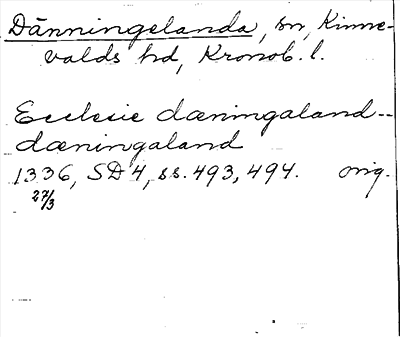 Dänningelanda, sn, Kinne-
valds hd, Kronob. l.
Ecclesie dæningaland--
dæningaland
1336, SD 4, ss. 493, 494. orig.
27/3